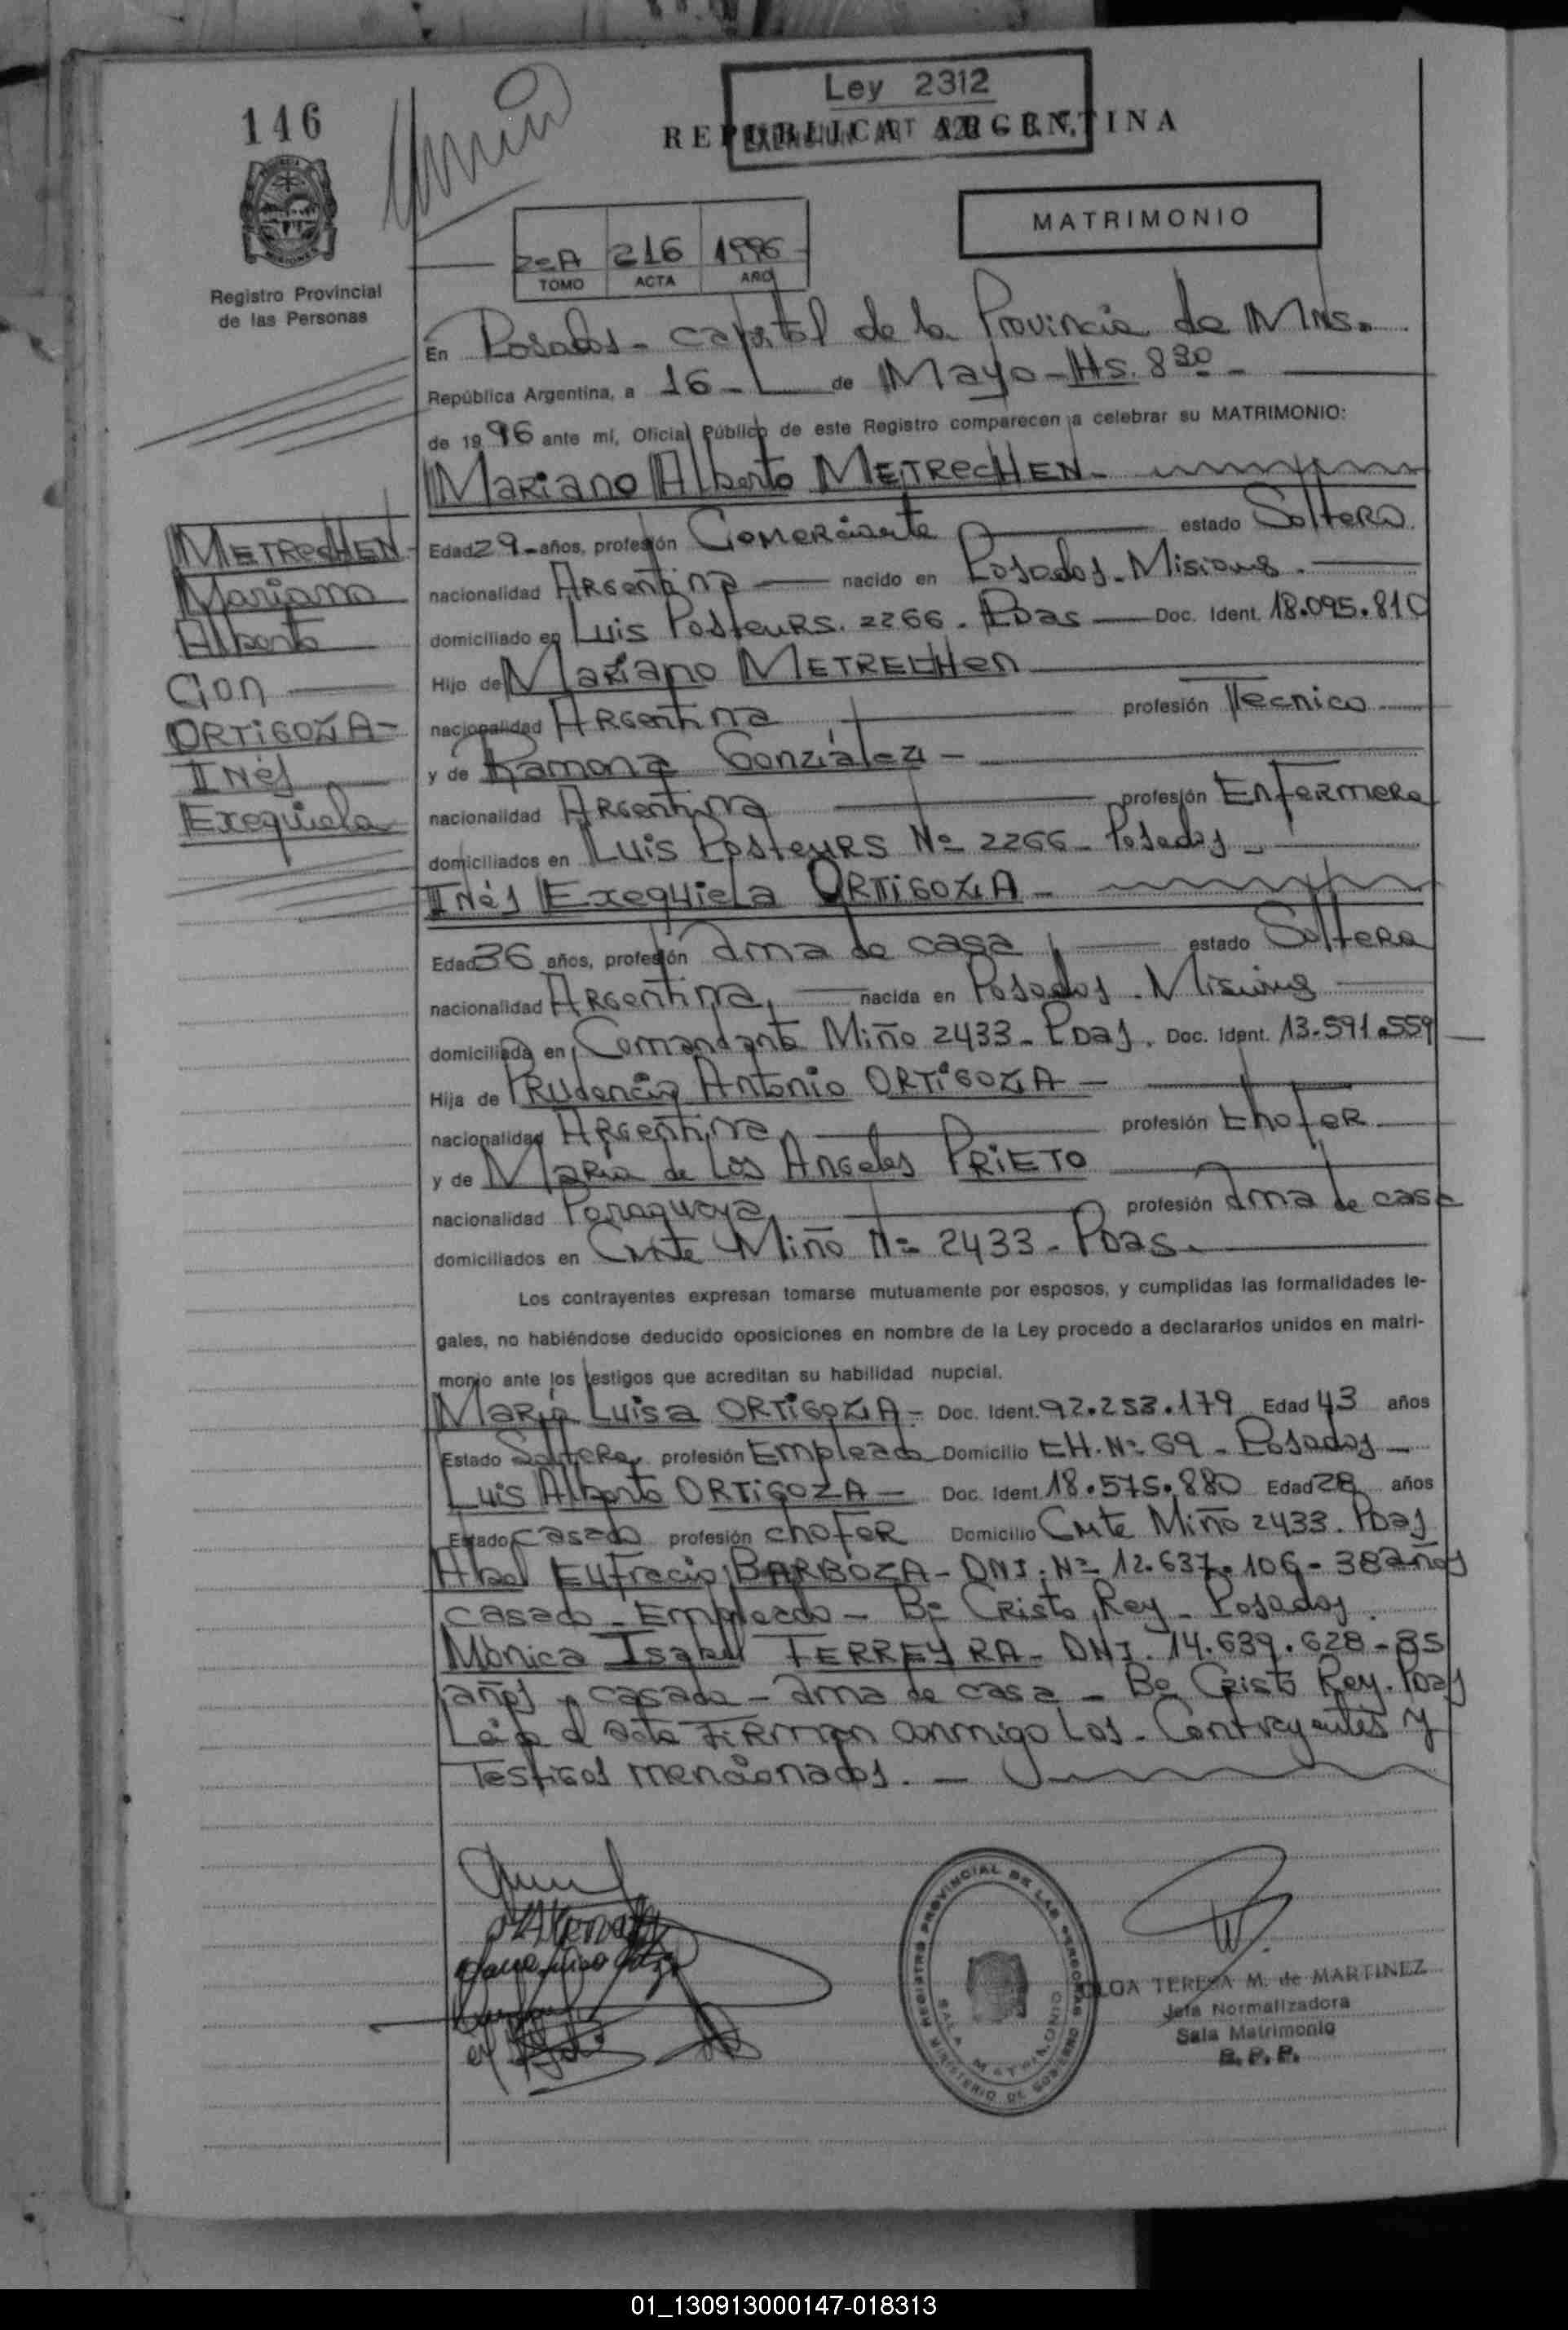 Ley 2312
146
REPUBLICA ARGENTINA
MATRIMONIO
2=A 216 1996
TOMO ACTA AÑO
Registro Provincial
de las Personas
En Posadas - capital de la Provincia de Mns.
República Argentina, a 16 - de Mayo - Hs. 8 30 -
de 19 96 ante mí, Oficial Público de este Registro comparecen a celebrar su MATRIMONIO:
Mariano Alberto METRECHEN -
METRECHEN -
Mariano
Alberto
Con
ORTIGOZA -
Inés
Exequiela
Edad 29 - años, profesión Comerciante estado Soltero
nacionalidad Argentina nacido en Posadas - Misiones.
domiciliado en Luis Posteurs. 2266 - Pdas Doc. Ident. 18.095.810
Hijo de Mariano METRECHEN
nacionalidad Argentina profesión Tecnico
y de Ramona González -
nacionalidad Argentina profesión Enfermera
domiciliados en Luis Posteurs Nº 2266 - Posadas -
Inés Exequiela ORTIGOZA -
Edad 36 años, profesión ama de casa estado Soltera
nacionalidad Argentina, nacida en Posadas - Misiones
domiciliada en Comandante Miño 2433 - Pdas. Doc. Ident. 13.591.559
Hija de Prudencio Antonio ORTIGOZA -
nacionalidad Argentina profesión chofer
y de Maria de Los Angeles PRIETO
nacionalidad Paraguaya profesión ama de casa
domiciliados en Cmte Miño Nº 2433 - Pdas.
Los contrayentes expresan tomarse mutuamente por esposos, y cumplidas las formalidades le-
gales, no habiéndose deducido oposiciones en nombre de la Ley procedo a declararlos unidos en matri-
monio ante los testigos que acreditan su habilidad nupcial.
Maria Luisa ORTIGOZA - Doc. Ident. 92.253.179 Edad 43 años
Estado Soltera profesión Empleada Domicilio CH. Nº 69 - Posadas -
Luis Alberto ORTIGOZA - Doc. Ident. 18.575.880 Edad 28 años
Estado casado profesión chofer Domicilio Cmte Miño 2433. Pdas
Abel Eufracio BARBOZA - DNI. Nº 12.637.106 - 38 años
casado - Empleado - Bº Cristo Rey - Posadas.
Mónica Isabel FERREYRA - DNI. 14.639.628 - 35
años, casada - ama de casa - Bº Cristo Rey. Pdas
Leída el acta firman conmigo Los - Contrayentes y
Testigos mencionados. -
REGISTRO PROVINCIAL DE LAS PERSONAS
SALA MATRIMONIO
MINISTERIO DE GOBIERNO
OLGA TERESA M. de MARTINEZ
Jefa Normalizadora
Sala Matrimonio
R. P. P.
01_130913000147-018313